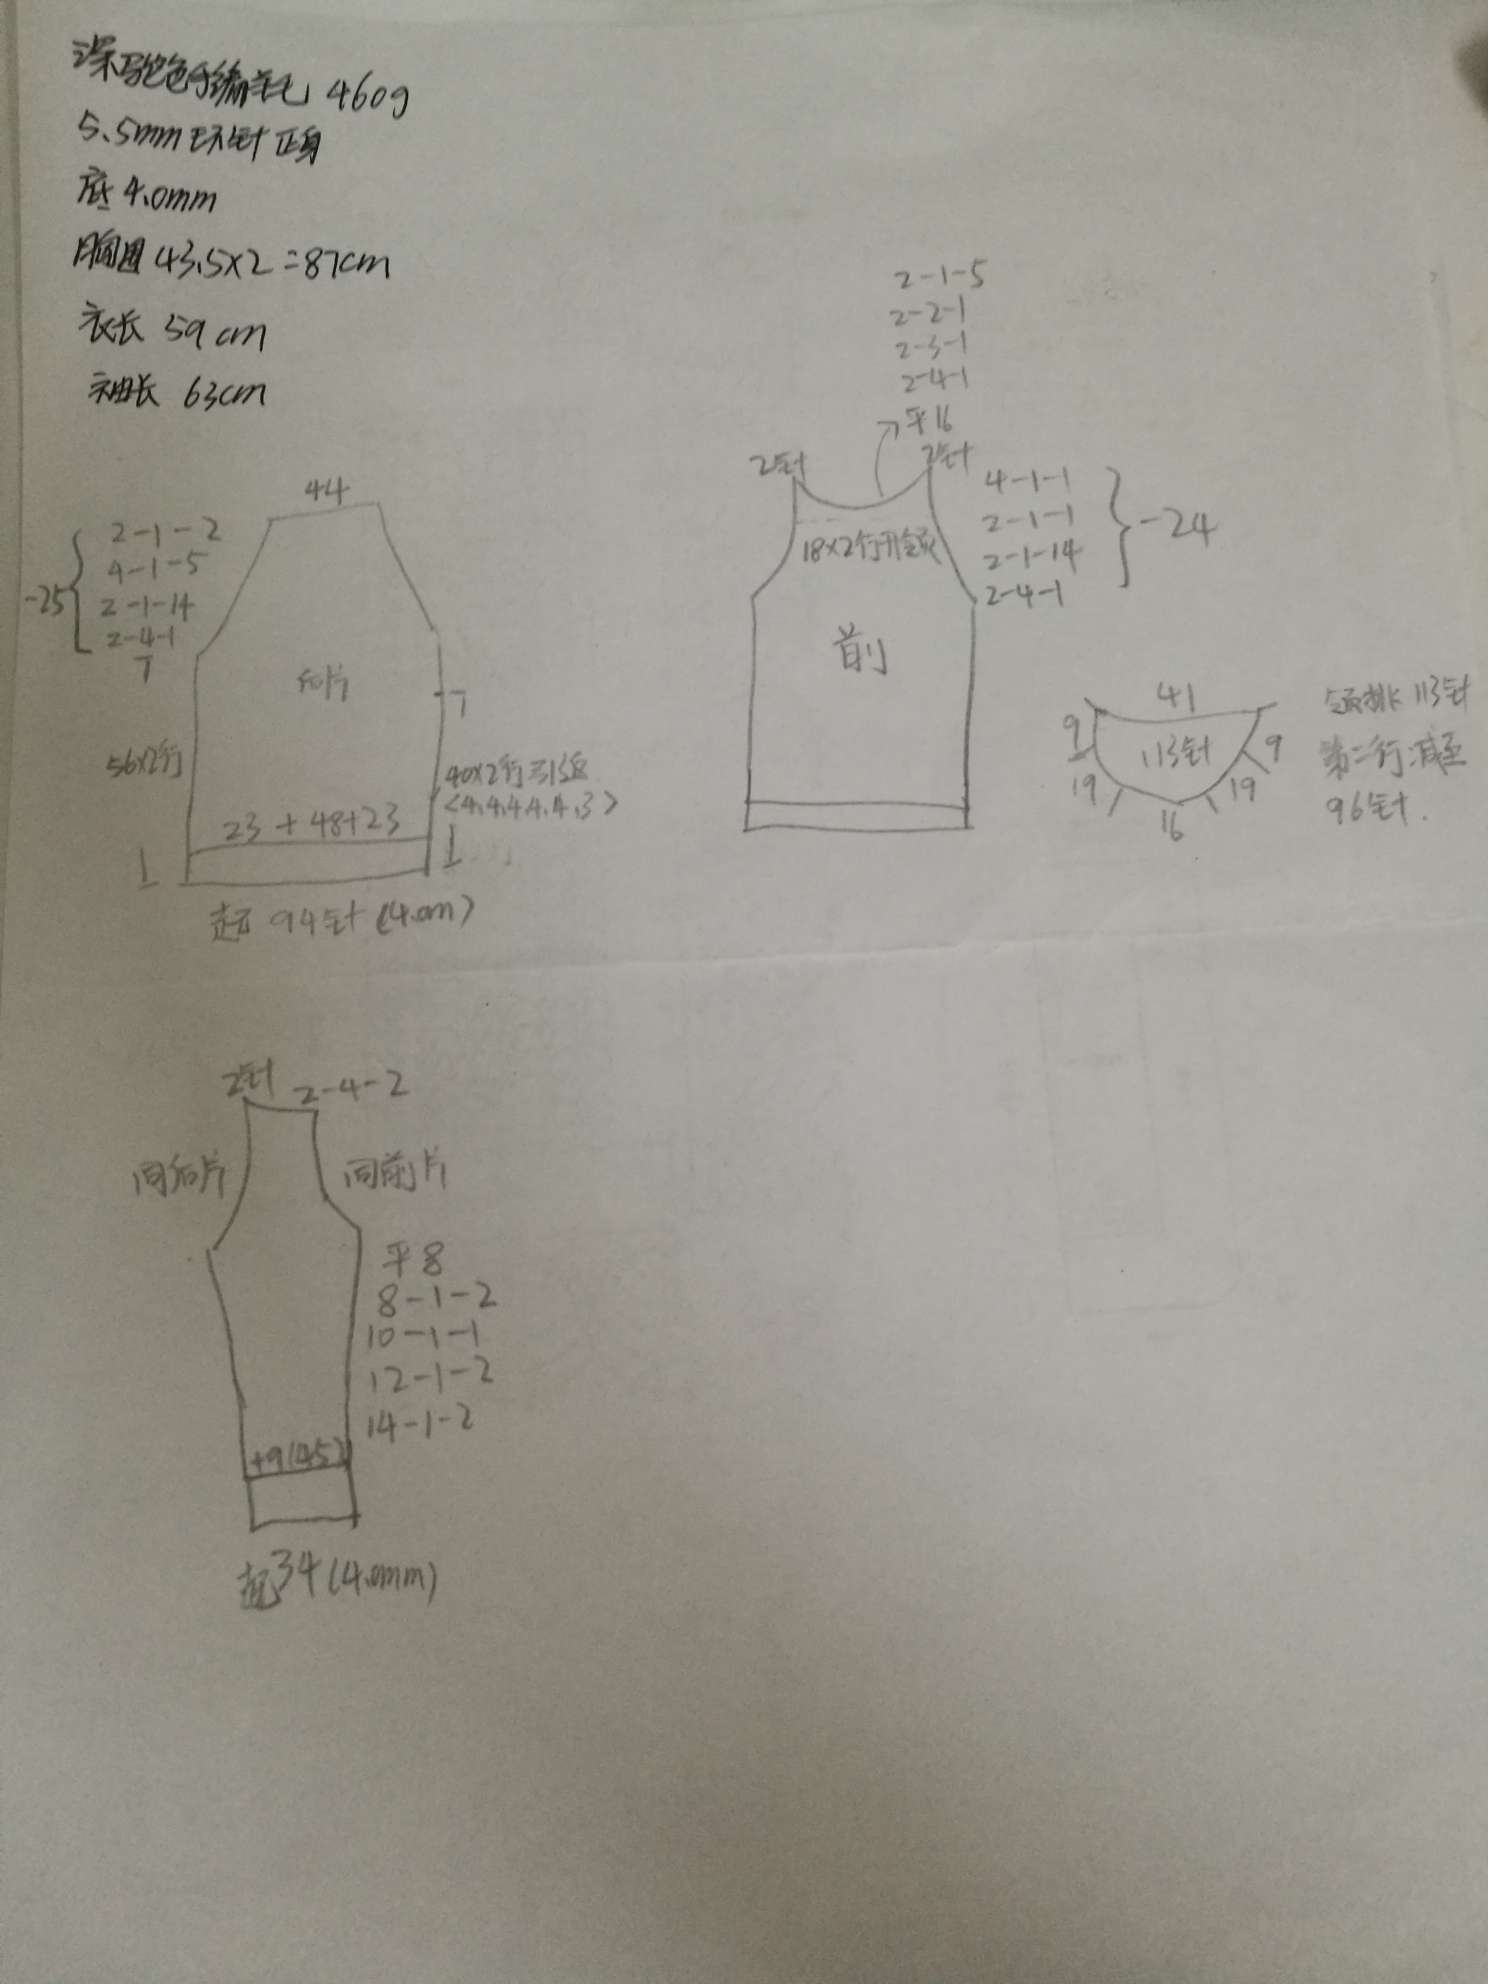 深驼色手编羊毛 460g
5.5mm环针 正身
底 4.0mm
胸围 43.5×2=87cm
衣长 59cm
袖长 63cm
44
2-1-2
4-1-5
2-1-14
2-4-1
-25
7
后片
7
56×2行
40×2行 引返
<4.4.4.4.4.3>
23+48+23
1
1
起 94针(4.0m)
2-1-5
2-2-1
2-3-1
2-4-1
平16
2针
2针
18×2行开领
4-1-1
2-1-1
2-1-14
2-4-1
-24
前
41
9
113针
9
19
19
16
领挑113针
第二行减至
96针.
2针
2-4-2
同后片
同前片
平8
8-1-2
10-1-1
12-1-2
14-1-2
+9(45)
起34(4.0mm)